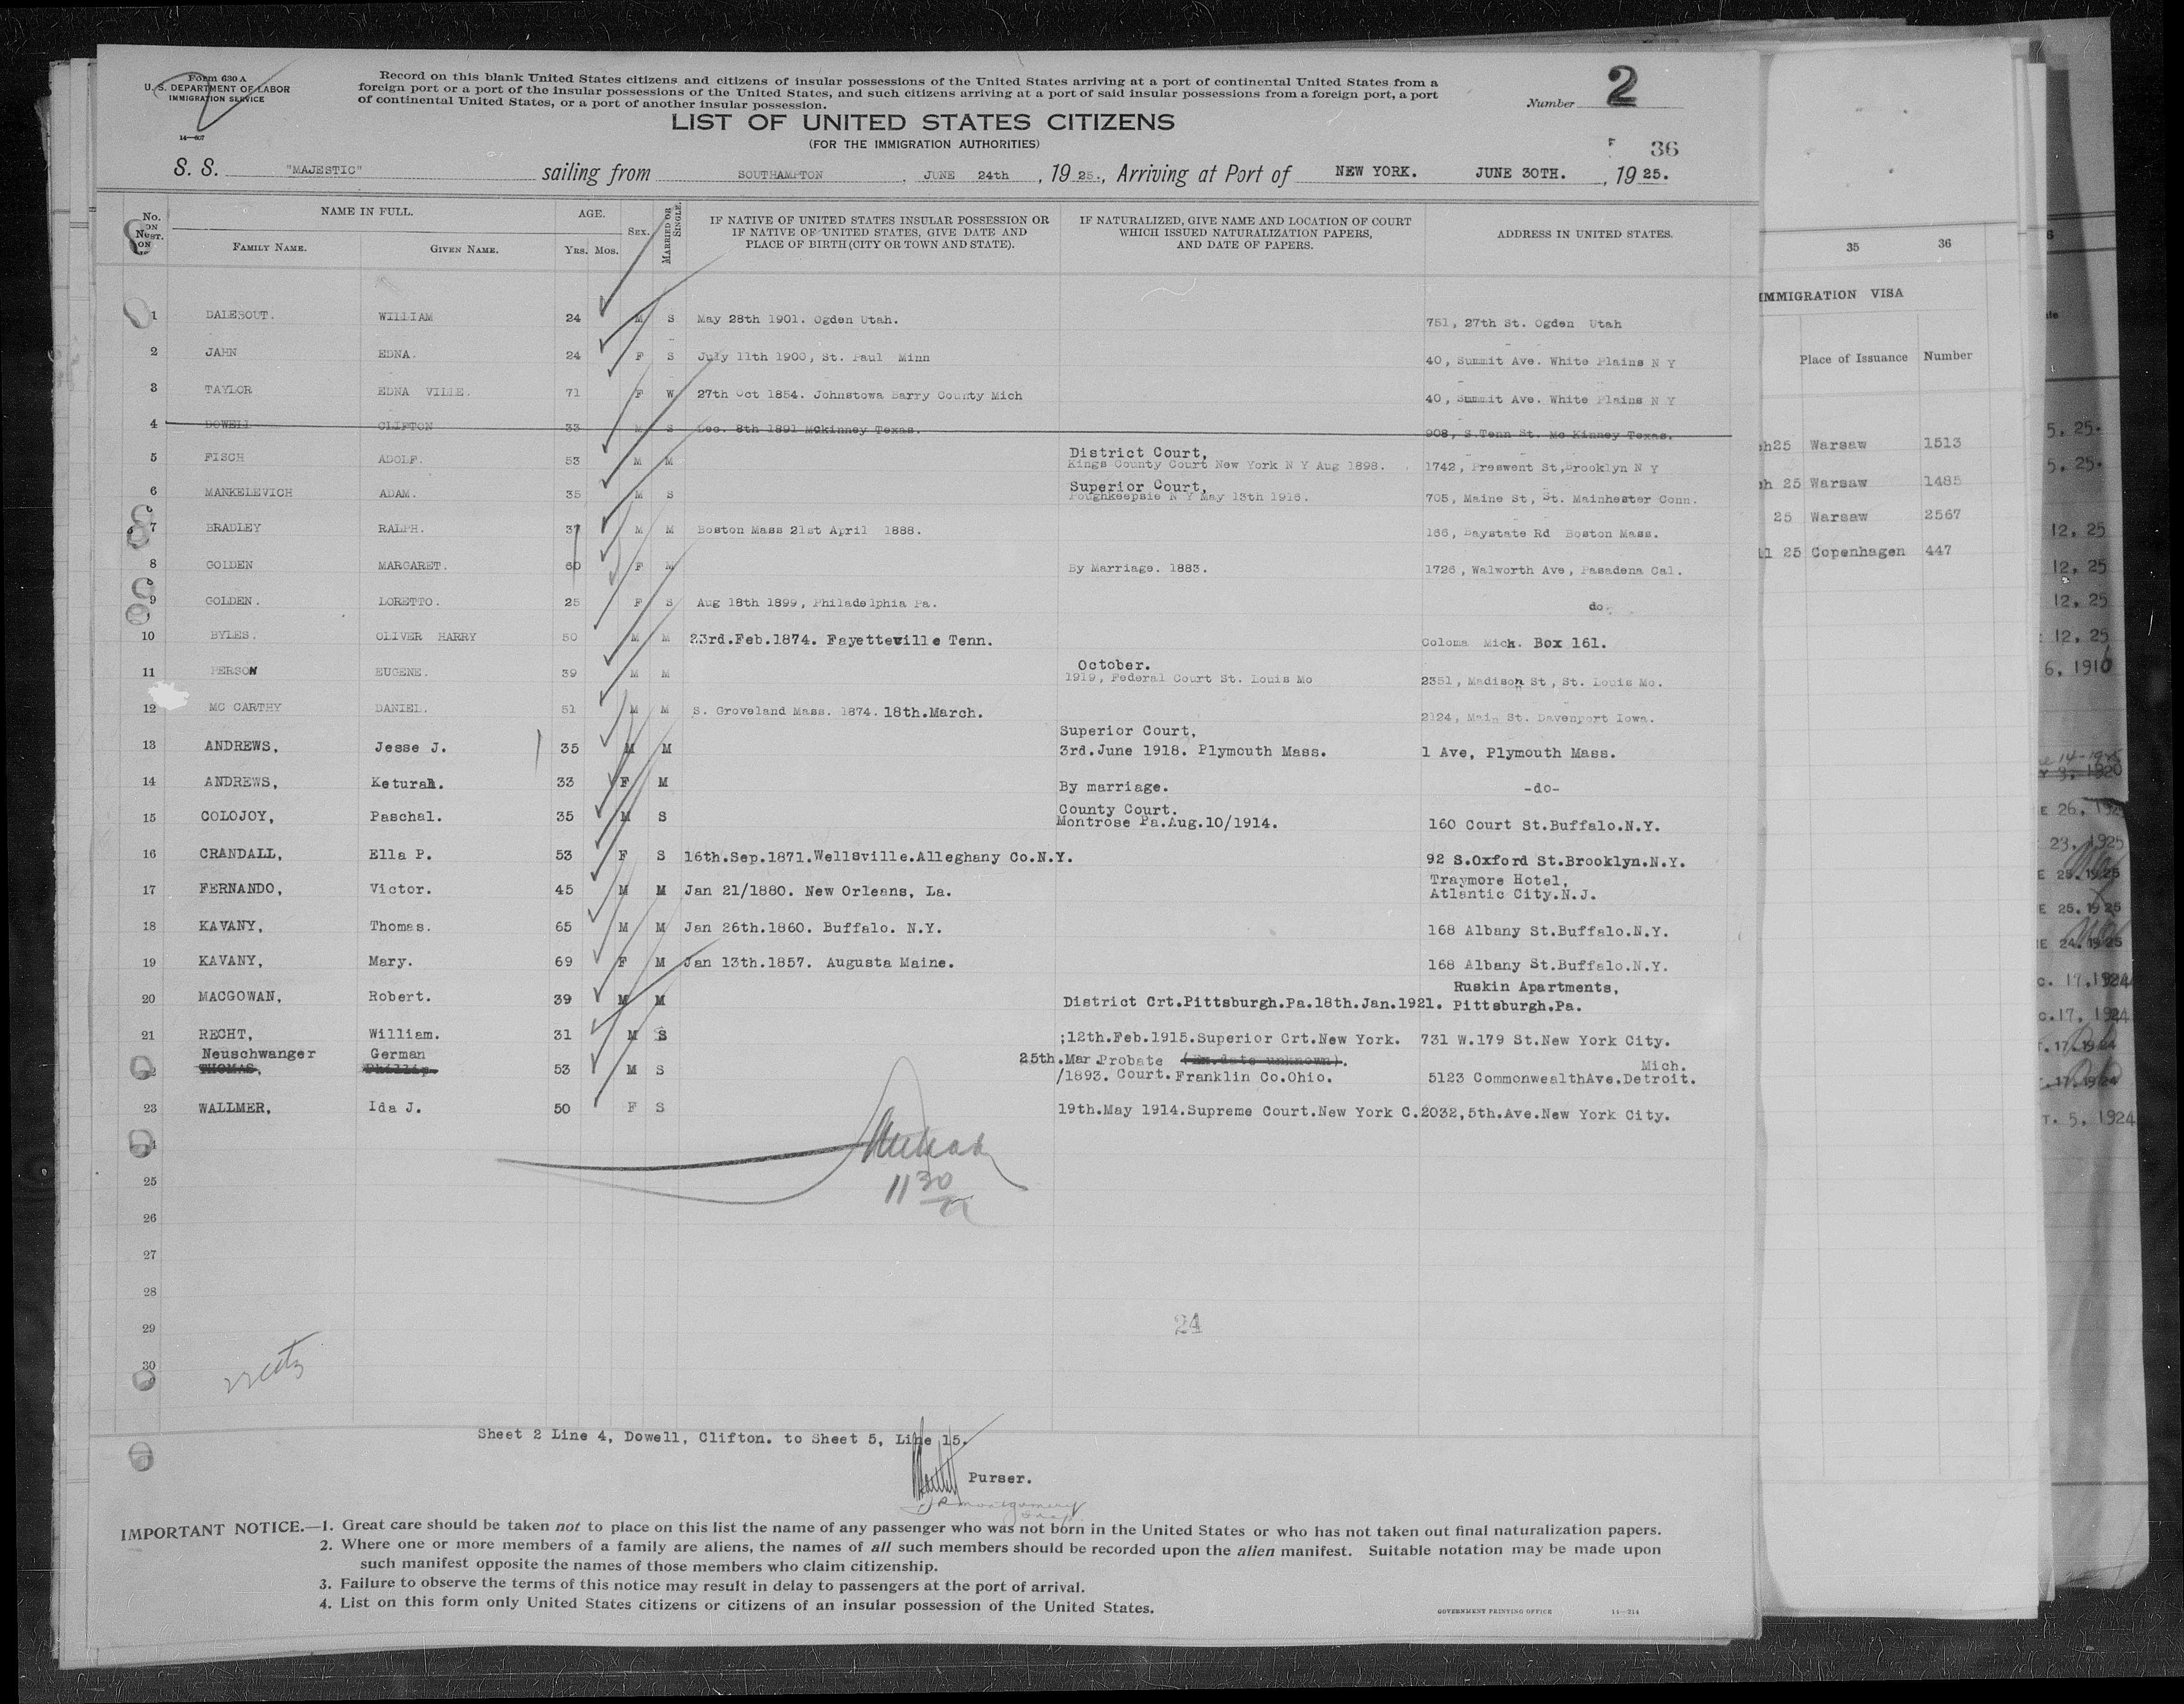 Form 630 A
U. S. DEPARTMENT OF LABOR
IMMIGRATION SERVICE
14—607
Record on this blank United States citizens and citizens of insular possessions of the United States arriving at a port of continental United States from a
foreign port or a port of the insular possessions of the United States, and such citizens arriving at a port of said insular possessions from a foreign port, a port
of continental United States, or a port of another insular possession.
Number 2
LIST OF UNITED STATES CITIZENS
(FOR THE IMMIGRATION AUTHORITIES)
36
S. S. "MAJESTIC" sailing from SOUTHAMPTON, JUNE 24th, 1925., Arriving at Port of NEW YORK. JUNE 30TH., 1925.
No. ON LIST.
NAME IN FULL.
FAMILY NAME. GIVEN NAME.
AGE.
YRS. MOS.
SEX.
MARRIED OR SINGLE.
IF NATIVE OF UNITED STATES INSULAR POSSESSION OR
IF NATIVE OF UNITED STATES, GIVE DATE AND
PLACE OF BIRTH (CITY OR TOWN AND STATE).
IF NATURALIZED, GIVE NAME AND LOCATION OF COURT
WHICH ISSUED NATURALIZATION PAPERS,
AND DATE OF PAPERS.
ADDRESS IN UNITED STATES.
1 DALEBOUT. WILLIAM 24 M S May 28th 1901. Ogden Utah. 751, 27th St. Ogden Utah
2 JAHN EDNA. 24 F S July 11th 1900, St. Paul Minn 40, Summit Ave. White Plains N Y
3 TAYLOR EDNA VILLE. 71 F W 27th Oct 1854. Johnstowa Barry County Mich 40, Summit Ave. White Plains N Y
4 DOWELL CLIFTON 33 M S Dec. 8th 1891 Mckinney Texas. 908, S.Tenn St. Mc Kinney Texas.
5 FISCH ADOLF. 53 M M District Court,
Kings County Court New York N Y Aug 1898. 1742, Preswent St,Brooklyn N Y
6 MANKELEVICH ADAM. 35 M S Superior Court,
Poughkeepsie N Y May 13th 1916. 705, Maine St, St. Mainhester Conn.
7 BRADLEY RALPH. 37 M M Boston Mass 21st April 1888. 166, Baystate Rd Boston Mass.
8 GOLDEN MARGARET. 60 F M By Marriage. 1883. 1726, Walworth Ave, Pasadena Cal.
9 GOLDEN. LORETTO. 25 F S Aug 18th 1899, Philadelphia Pa. do.
10 BYLES. OLIVER HARRY 50 M M 23rd.Feb.1874. Fayetteville Tenn. Coloma Mich. Box 161.
11 PERSON EUGENE. 39 M M October.
1919, Federal Court St. Louis Mo 2351, Madison St, St. Louis Mo.
12 MC CARTHY DANIEL. 51 M M S. Groveland Mass. 1874. 18th.March. 2124, Main St. Davenport Iowa.
13 ANDREWS, Jesse J. 35 M M Superior Court,
3rd.June 1918. Plymouth Mass. 1 Ave, Plymouth Mass.
14 ANDREWS, Keturah. 33 F M By marriage. -do-
15 COLOJOY, Paschal. 35 M S County Court.
Montrose Pa.Aug.10/1914. 160 Court St.Buffalo.N.Y.
16 CRANDALL, Ella P. 53 F S 16th.Sep.1871.Wellsville.Alleghany Co.N.Y. 92 S.Oxford St.Brooklyn.N.Y.
17 FERNANDO, Victor. 45 M M Jan 21/1880. New Orleans, La. Traymore Hotel,
Atlantic City.N.J.
18 KAVANY, Thomas. 65 M M Jan 26th.1860. Buffalo. N.Y. 168 Albany St.Buffalo.N.Y.
19 KAVANY, Mary. 69 F M Jan 13th.1857. Augusta Maine. 168 Albany St.Buffalo.N.Y.
20 MACGOWAN, Robert. 39 M M District Crt.Pittsburgh.Pa.18th.Jan.1921. Ruskin Apartments,
Pittsburgh.Pa.
21 RECHT, William. 31 M S ;12th.Feb.1915.Superior Crt.New York. 731 W.179 St.New York City.
Neuschwanger German
THOMAS, Phillip. 53 M S 25th.Mar Probate (Ex.date unknown).
/1893. Court. Franklin Co.Ohio. 5123 CommonwealthAve.Detroit. Mich.
23 WALLMER, Ida J. 50 F S 19th.May 1914.Supreme Court.New York C. 2032,5th.Ave.New York City.
25
26
27
28
29
30
11 30
24
Sheet 2 Line 4, Dowell, Clifton. to Sheet 5, Line 15.
Purser.
IMPORTANT NOTICE.—1. Great care should be taken not to place on this list the name of any passenger who was not born in the United States or who has not taken out final naturalization papers.
2. Where one or more members of a family are aliens, the names of all such members should be recorded upon the alien manifest. Suitable notation may be made upon
such manifest opposite the names of those members who claim citizenship.
3. Failure to observe the terms of this notice may result in delay to passengers at the port of arrival.
4. List on this form only United States citizens or citizens of an insular possession of the United States.
GOVERNMENT PRINTING OFFICE 14—314
35 36
IMMIGRATION VISA
Place of Issuance Number
25 Warsaw 1513
25 Warsaw 1485
25 Warsaw 2567
25 Copenhagen 447
5. 25.
5. 25.
12, 25
12, 25
12, 25
12, 25
6, 1910
26, 1925
23, 1925
25, 1925
25, 1925
24, 1925
17, 1924
17, 1924
17, 1924
17, 1924
T. 5, 1924